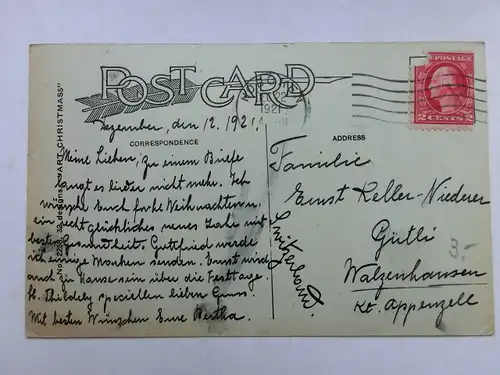 POST CARD
1921
POSTAGE
2 CENTS 2
Dezember, den 12. 1921.
CORRESPONDENCE
ADDRESS
Meine Lieben, zu einem Briefe
langt es leider nicht mehr. Ich
wünsche Euch frohe Weihnachten u.
ein recht glückliches neues Jahr mit
bester Gesundheit. Gottfried werde
ich einige Marken senden. Ernst wird
auch zu Hause sein über die Festtage.
Kl. speziellen lieben Gruss.
Mit besten Wünschen Eure Bertha.
Familie
Ernst Keller-Niederer
Gütli
Walzenhausen
Kt. Appenzell
Switzerland.
No. 2283. 32 designs. "ART CHRISTMAS"